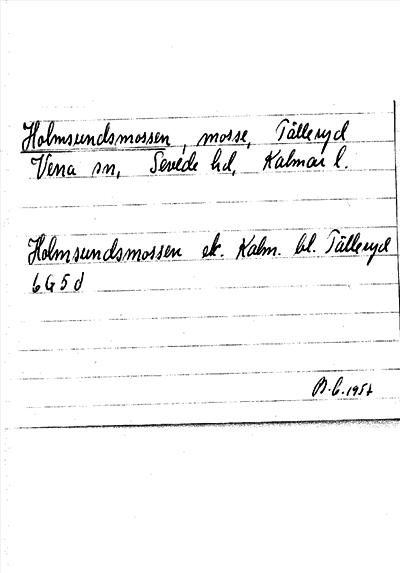 Holmsundsmossen, mosse, Tälleryd
Vena sn, Sevede hd, Kalmar l.
Holmsundsmossen ek. Kalm. bl. Tälleryd
6G5d
B.C. 1957